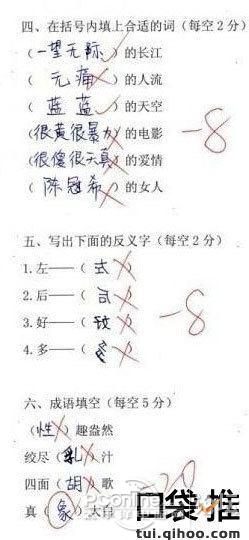 四、在括号内填上合适的词（每空2分）
（一望无际）的长江
（无痛）的人流
（蓝蓝）的天空
（很黄很暴力）的电影
（很傻很天真）的爱情
（陈冠希）的女人
-8
五、写出下面的反义字（每空2分）
1.左——（）
2.后——（）
3.好——（）
4.多——（）
-8
六、成语填空（每空5分）
（性）趣盎然
绞尽（乳）汁
四面（胡）歌
真（象）大白
-20
口袋推
tui.qihoo.com